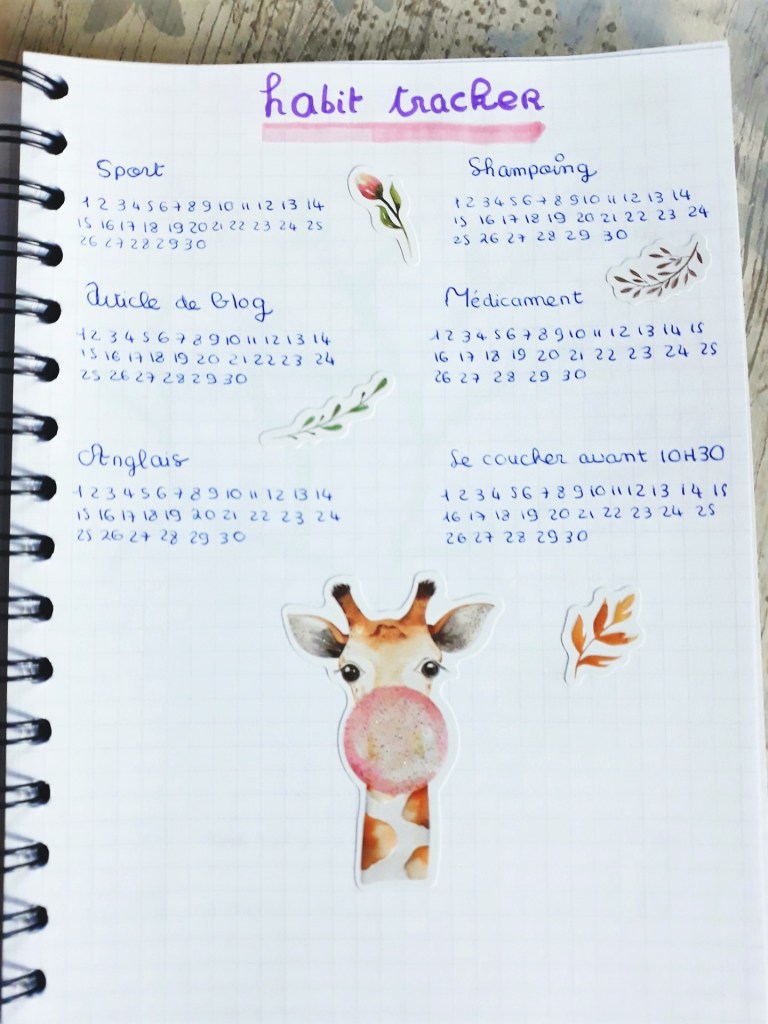 habit tracker
Sport
1 2 3 4 5 6 7 8 9 10 11 12 13 14
15 16 17 18 19 20 21 22 23 24 25
26 27 28 29 30
Shampoing
1 2 3 4 5 6 7 8 9 10 11 12 13 14
15 16 17 18 19 20 21 22 23 24
25 26 27 28 29 30
Article de blog
1 2 3 4 5 6 7 8 9 10 11 12 13 14
15 16 17 18 19 20 21 22 23 24
25 26 27 28 29 30
Médicament
1 2 3 4 5 6 7 8 9 10 11 12 13 14 15
16 17 18 19 20 21 22 23 24 25
26 27 28 29 30
Anglais
1 2 3 4 5 6 7 8 9 10 11 12 13 14
15 16 17 18 19 20 21 22 23 24
25 26 27 28 29 30
Se coucher avant 10H30
1 2 3 4 5 6 7 8 9 10 11 12 13 14 15
16 17 18 19 20 21 22 23 24 25
26 27 28 29 30